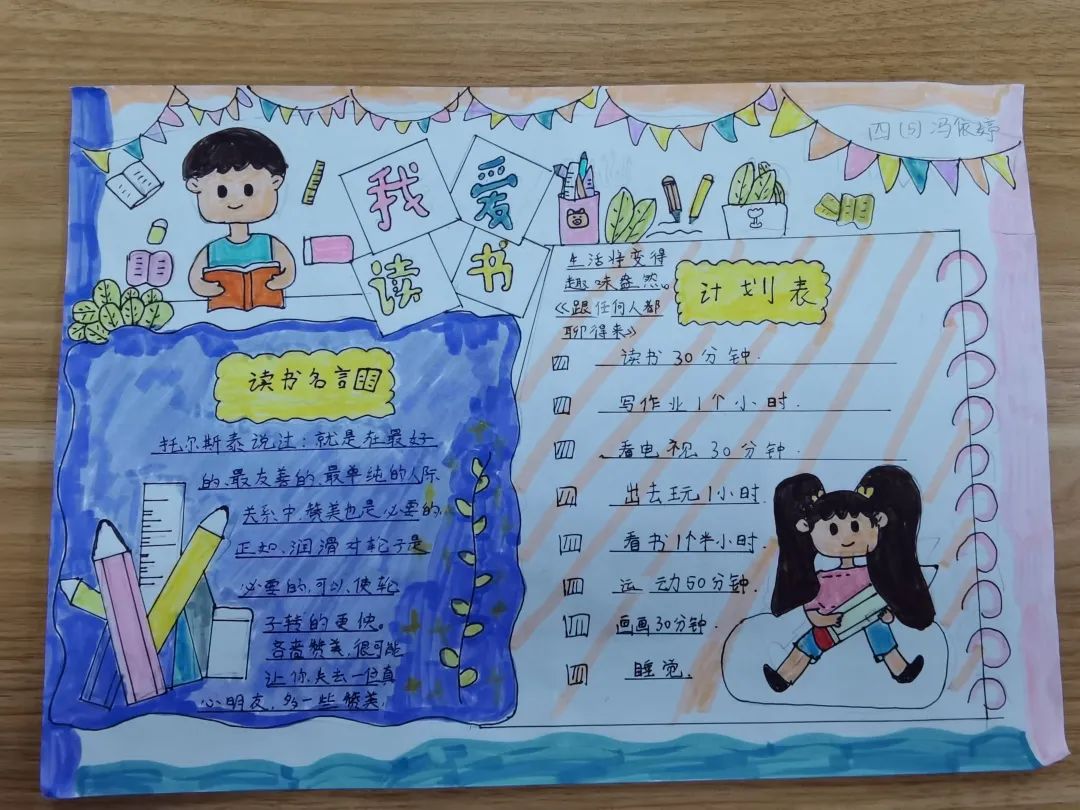 四(5)冯依婷
我爱
读书
读书名言
托尔斯泰说过：就是在最好
的、最友善的、最单纯的人际
关系中,赞美也是必要的,
正如、润滑对轮子是
必要的,可以使轮
子转的更快。
吝啬赞美,很可能
让你失去一位真
心朋友,多一些赞美,
生活将变得
趣味盎然。
《跟任何人都
聊得来》
计划表
读书30分钟.
写作业1个小时.
看电视30分钟.
出去玩1小时.
看书1个半小时.
运动50分钟.
画画30分钟.
睡觉.